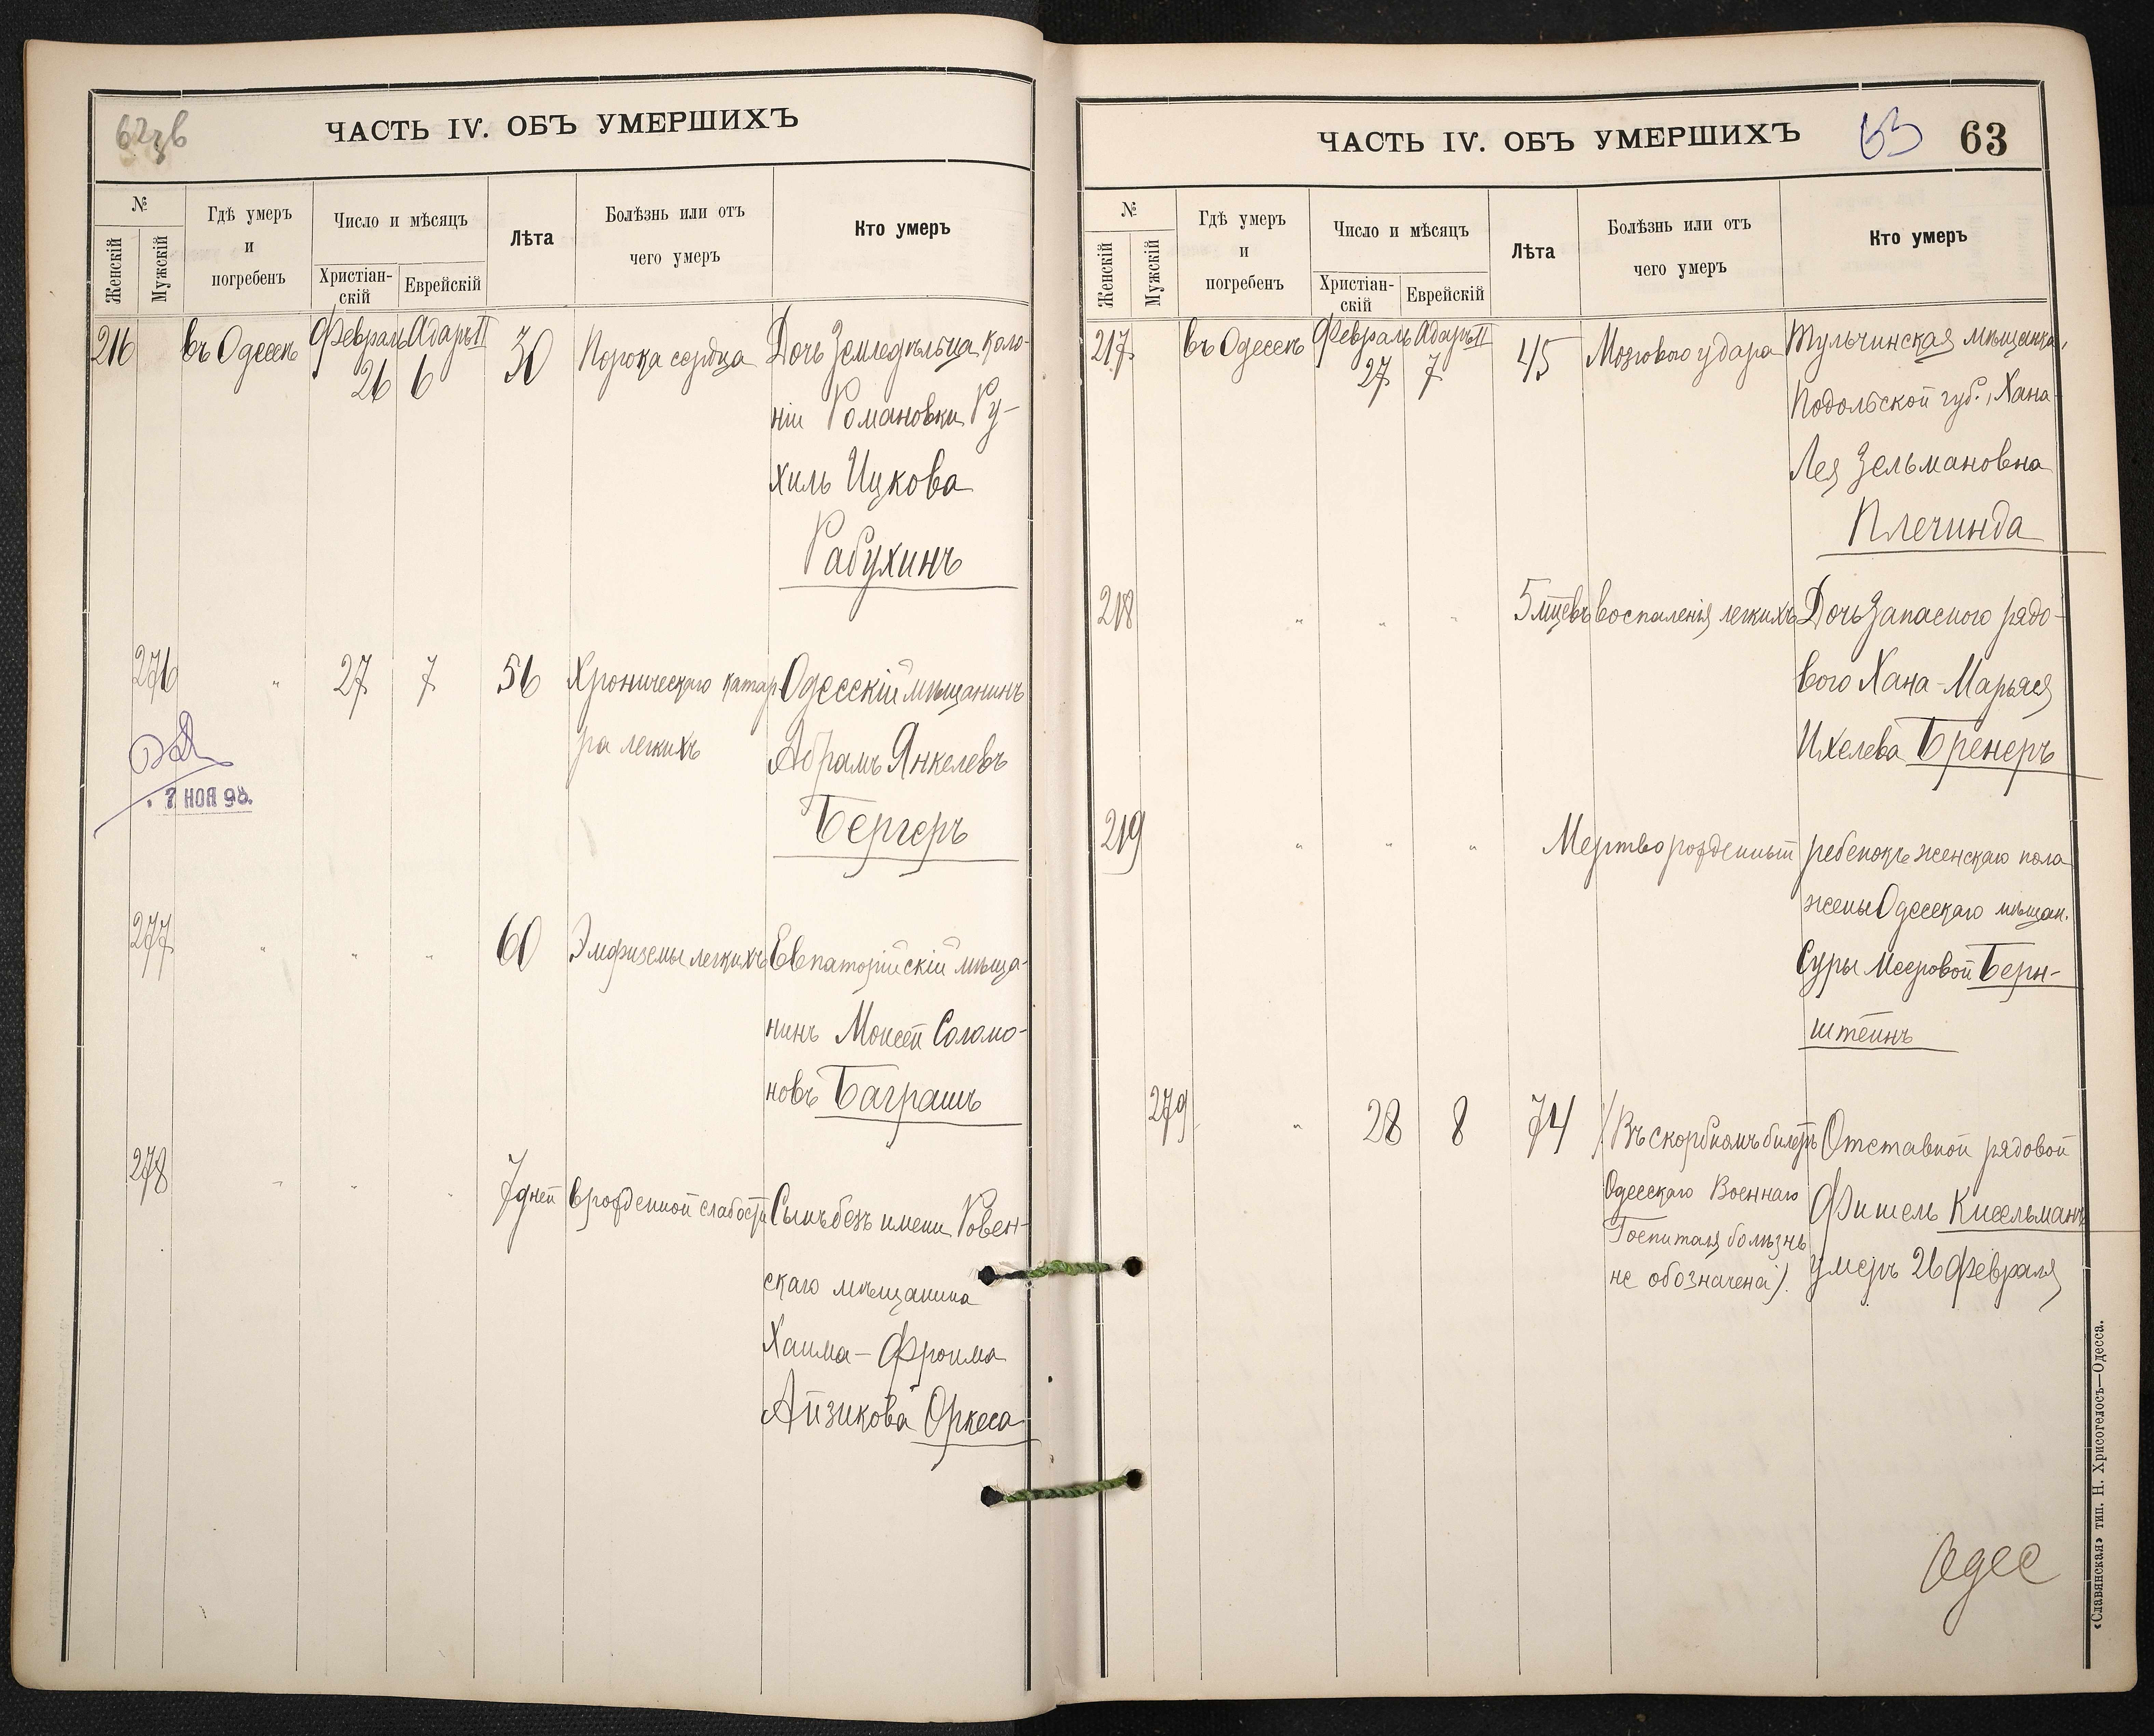 ЧАСТЬ IV. ОБЪ УМЕРШИХЪ
№
Женскій
Мужскій
Гдѣ умеръ
и
погребенъ
Число и мѣсяцъ
Христіан-
скій
Еврейскій
Лѣта
Болѣзнь или отъ
чего умеръ
Кто умеръ
216 въ Одессѣ Февраль 26 Адаръ II 6 30 Порока сердца Дочь Земледѣльца коло-
ніи Романовки Ру-
хиль Ицкова
Рабухинъ
276 " 27 7 56 Хроническаго катар- Одесскій мѣщанинъ
ра легкихъ Абрамъ Янкелевъ
Бергеръ
7 НОЯ 98.
277 " " " 60 Эмфиземы легкихъ Евпаторійскій мѣща-
нинъ Моисей Соломо-
новъ Баграшъ
278 " " " 7 дней врожденной слабости Сынъ безъ имени Ровен-
скаго мѣщанина
Хаима-Фроима
Айзикова Оркеса
ЧАСТЬ IV. ОБЪ УМЕРШИХЪ 63 63
№
Женскій
Мужскій
Гдѣ умеръ
и
погребенъ
Число и мѣсяцъ
Христіан-
скій
Еврейскій
Лѣта
Болѣзнь или отъ
чего умеръ
Кто умеръ
217 въ Одессѣ Февраль 27 Адаръ II 7 45 Мозгового удара Тульчинская мѣщанка,
Подольской губ., Хана
Лея Зельмановна
Плечинда
218 " " " 5 мцевъ воспаленія легкихъ Дочь Запасного рядо-
вого Хана-Марьяся
Ихелева Бренеръ
219 " " " Мертворожденный ребенокъ женскаго пола
жены Одесскаго мѣщан.
Суры Мееровой Берн-
штейнъ
279 " 28 8 74 (Въ скорбномъ билетѣ Отставной рядовой
Одесскаго Военнаго Фишель Кисельманъ
Госпиталя болѣзнь умеръ 26 Февраля
не обозначена).
Одес
«Славянская» тип. Н. Хрисогелосъ—Одесса.